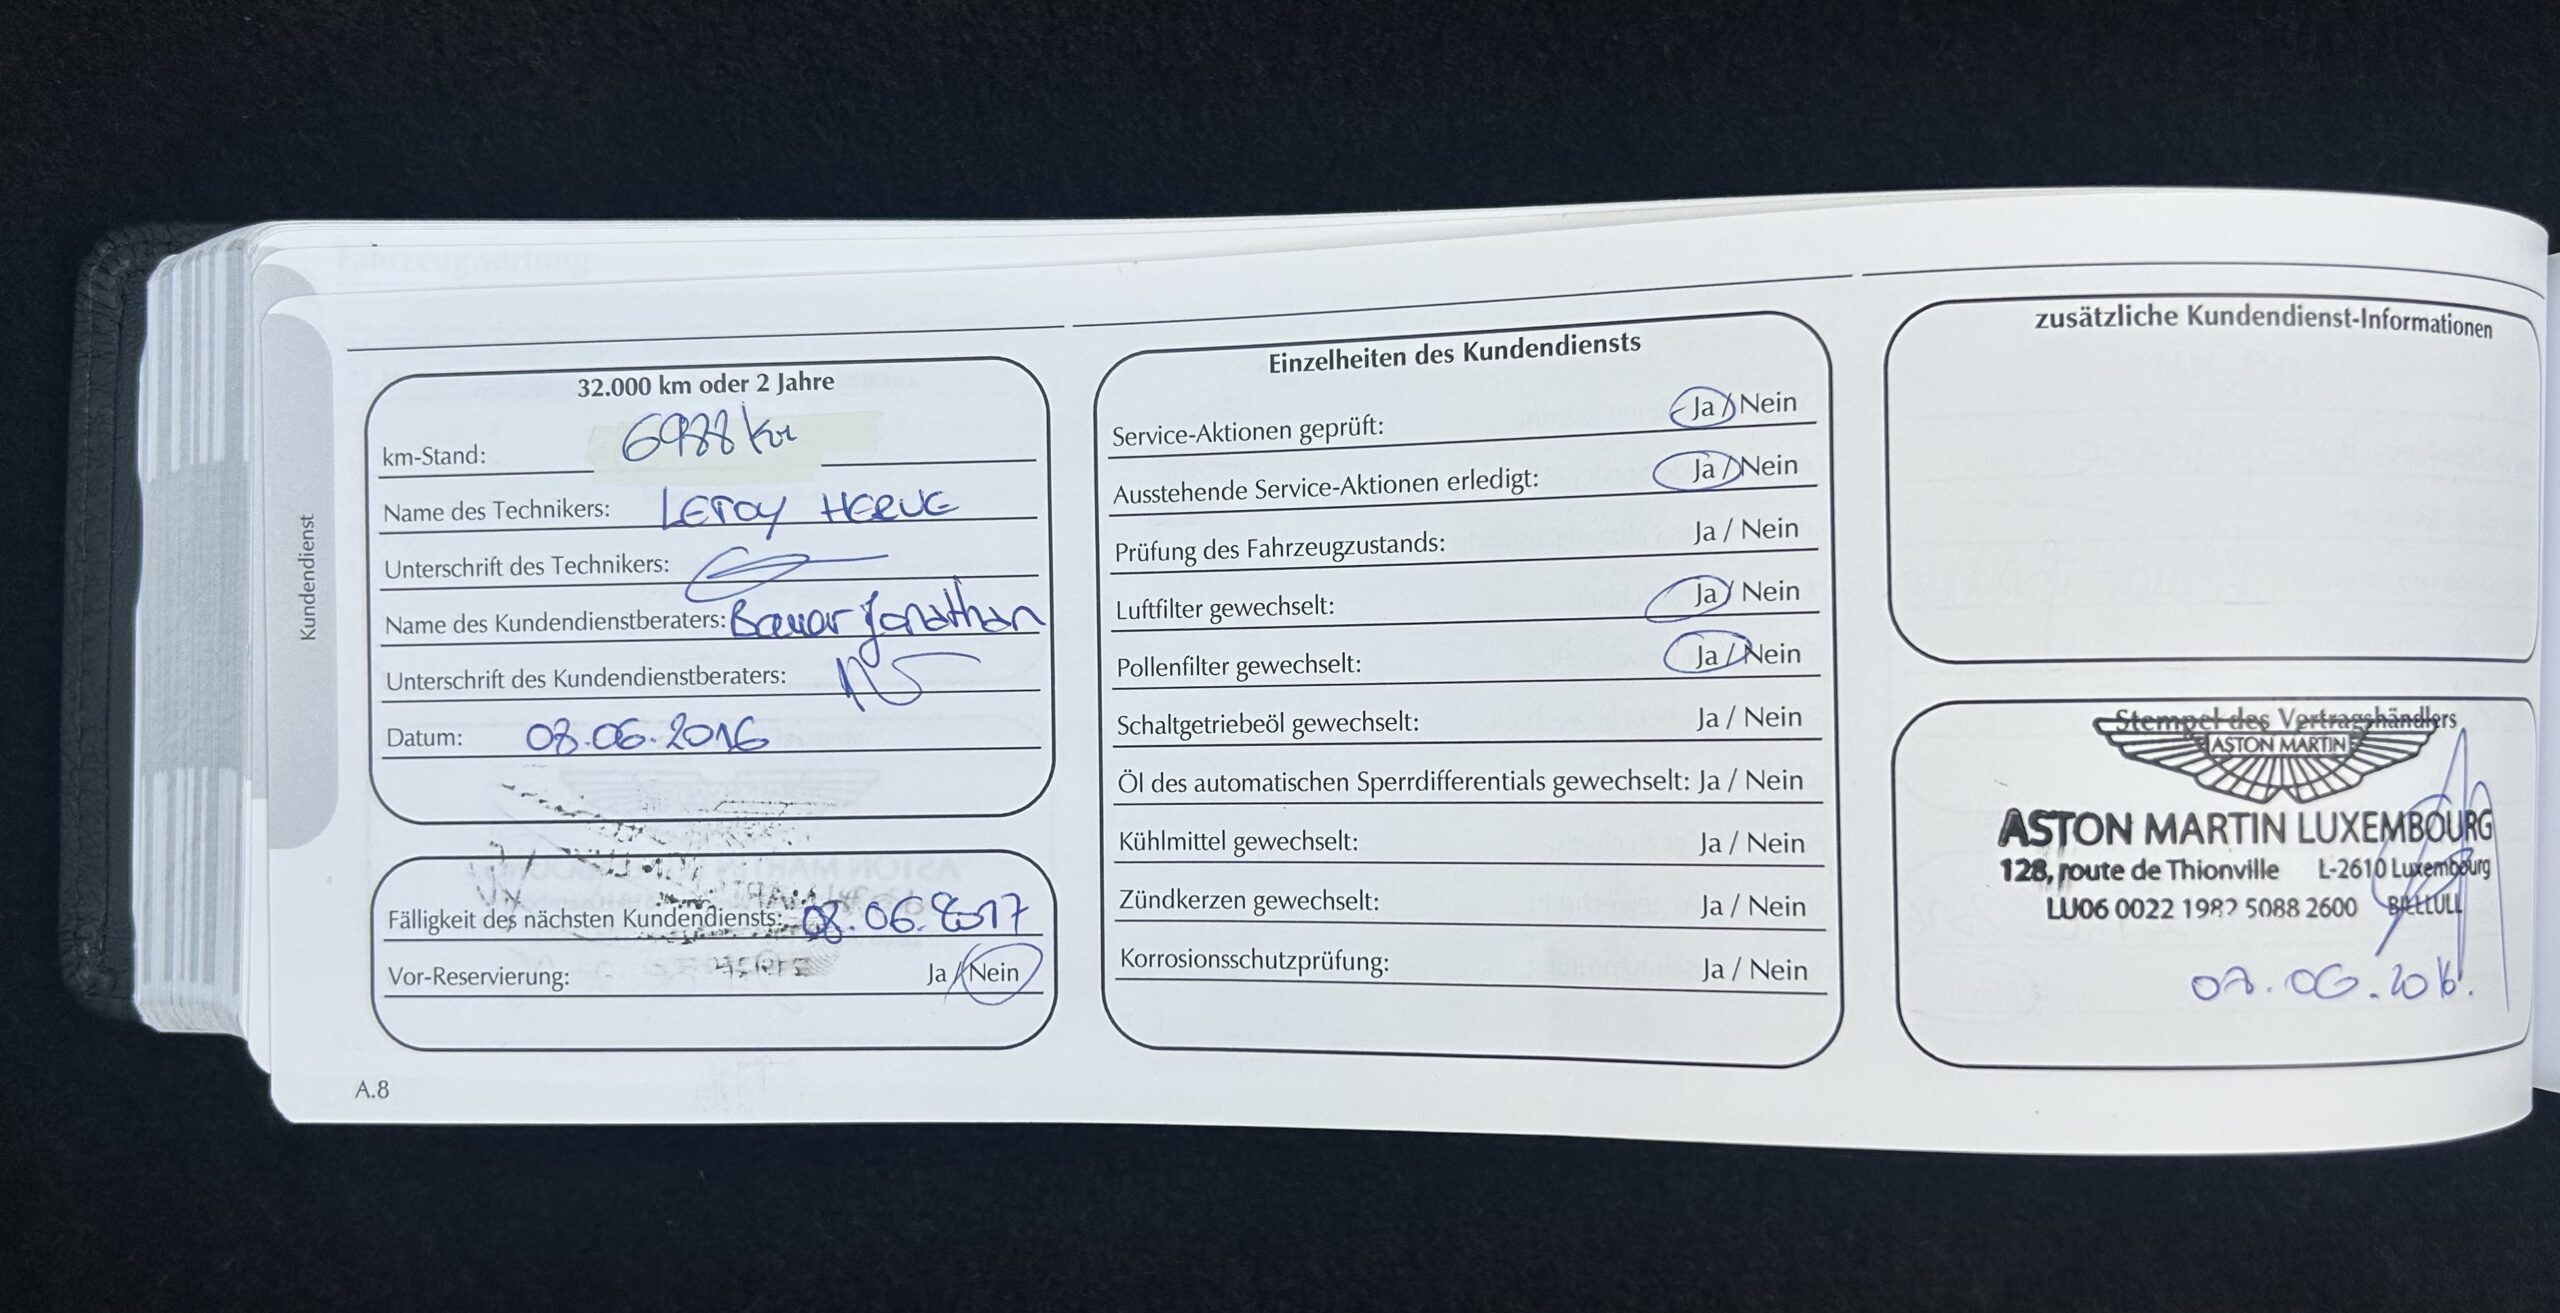 Kundendienst
32.000 km oder 2 Jahre
km-Stand: 6988 km
Name des Technikers: LEROY HERVE
Unterschrift des Technikers:
Name des Kundendienstberaters: Bauer Jonathan
Unterschrift des Kundendienstberaters:
Datum: 08.06.2016
Fälligkeit des nächsten Kundendiensts: 08.06.2017
Vor-Reservierung: Ja / Nein
A.8
Einzelheiten des Kundendiensts
Service-Aktionen geprüft: Ja / Nein
Ausstehende Service-Aktionen erledigt: Ja / Nein
Prüfung des Fahrzeugzustands: Ja / Nein
Luftfilter gewechselt: Ja / Nein
Pollenfilter gewechselt: Ja / Nein
Schaltgetriebeöl gewechselt: Ja / Nein
Öl des automatischen Sperrdifferentials gewechselt: Ja / Nein
Kühlmittel gewechselt: Ja / Nein
Zündkerzen gewechselt: Ja / Nein
Korrosionsschutzprüfung: Ja / Nein
zusätzliche Kundendienst-Informationen
Stempel des Vertragshändlers
ASTON MARTIN
ASTON MARTIN LUXEMBOURG
128, route de Thionville L-2610 Luxembourg
LU06 0022 1982 5088 2600 BILLLULL
08.06.2016.